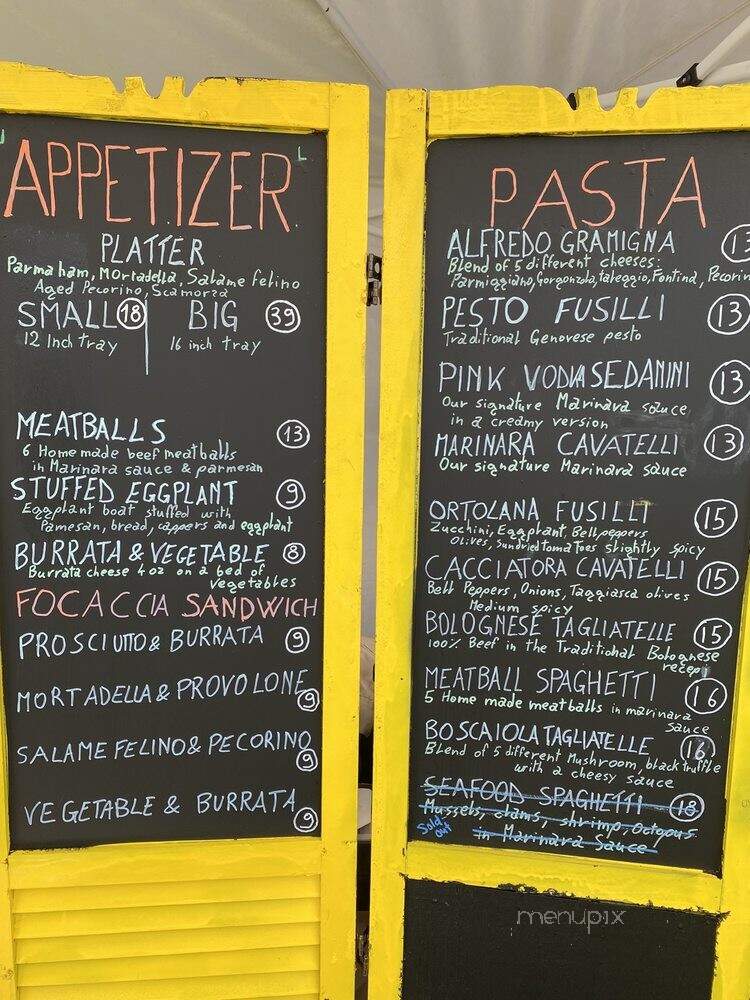 APPETIZER
PLATTER
Parma ham, Mortadella, Salame felino
Aged Pecorino, Scamorza
SMALL 18 BIG 39
12 Inch tray 16 inch tray
MEATBALLS 13
6 Home made beef meatballs
in Marinara sauce & parmesan
STUFFED EGGPLANT 9
Eggplant boat stuffed with
Parmesan, bread, cappers and eggplant
BURRATA & VEGETABLE 8
Burrata cheese 4 oz on a bed of
vegetables
FOCACCIA SANDWICH
PROSCIUTTO & BURRATA 9
MORTADELLA & PROVOLONE 9
SALAME FELINO & PECORINO 9
VEGETABLE & BURRATA 9
PASTA
ALFREDO GRAMIGNA 13
Blend of 5 different cheeses:
Parmiggiano, Gorgonzola, taleggio, Fontina, Pecorin
PESTO FUSILLI 13
Traditional Genovese pesto
PINK VODKA SEDANINI 13
Our signature Marinara sauce
in a creamy version
MARINARA CAVATELLI 13
Our signature Marinara sauce
ORTOLANA FUSILLI 15
Zucchini, Eggplant, Bell peppers
Olives, Sundried tomatoes slightly spicy
CACCIATORA CAVATELLI 15
Bell Peppers, Onions, Taggiasca olives
Medium spicy
BOLOGNESE TAGLIATELLE 15
100% Beef in the Traditional Bolognese
recepi
MEATBALL SPAGHETTI 16
5 Home made meatballs in marinara
sauce
BOSCAIOLA TAGLIATELLE 16
Blend of 5 different Mushroom, black truffle
with a cheesy sauce
SEAFOOD SPAGHETTI 18
Mussels, clams, shrimp, octopus
Sold out in Marinara Sauce
menupix